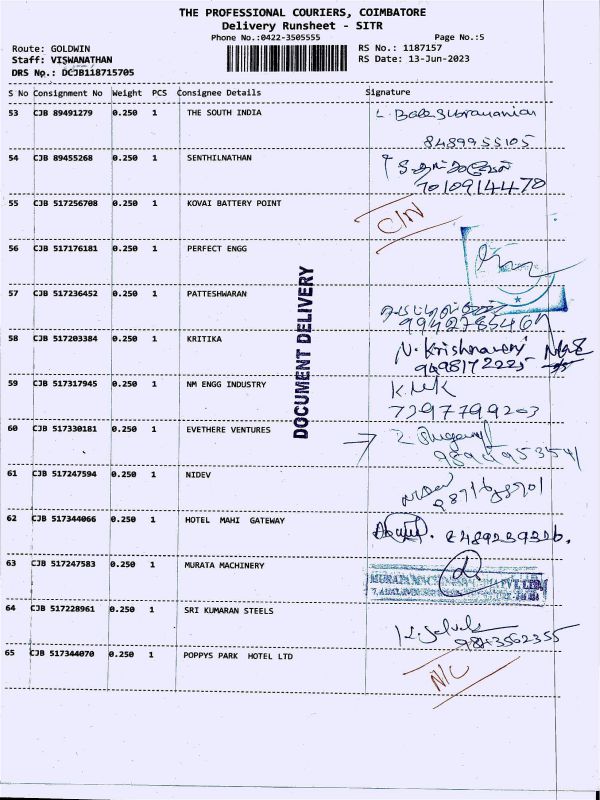 THE PROFESSIONAL COURIERS, COIMBATORE
Delivery Runsheet - SITR
Phone No.:0422-3505555 Page No.:5
Route: GOLDWIN RS No.: 1187157
Staff: VISWANATHAN RS Date: 13-Jun-2023
DRS No.: DCJB118715705
S No Consignment No Weight PCS Consignee Details Signature
53 CJB 89491279 0.250 1 THE SOUTH INDIA L. Balasubramanian
8489955105
54 CJB 89455268 0.250 1 SENTHILNATHAN
7010914470
55 CJB 517256708 0.250 1 KOVAI BATTERY POINT C/N
56 CJB 517176181 0.250 1 PERFECT ENGG
57 CJB 517236452 0.250 1 PATTESHWARAN
DOCUMENT DELIVERY
58 CJB 517203384 0.250 1 KRITIKA N. Krishnaveni
59 CJB 517317945 0.250 1 NM ENGG INDUSTRY
7297799203
60 CJB 517330181 0.250 1 EVETHERE VENTURES
61 CJB 517247594 0.250 1 NIDEV
62 CJB 517344066 0.250 1 HOTEL MAHI GATEWAY 8489239326.
63 CJB 517247583 0.250 1 MURATA MACHINERY
64 CJB 517228961 0.250 1 SRI KUMARAN STEELS
9843562355
65 CJB 517344070 0.250 1 POPPYS PARK HOTEL LTD N/C